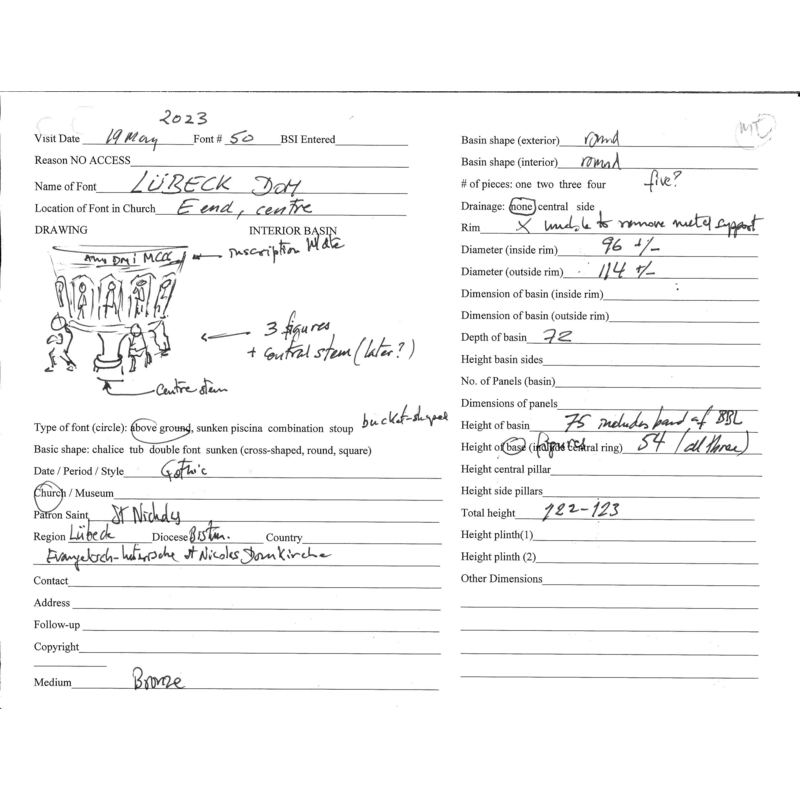 2023
Visit Date 19 May Font # 50 BSI Entered
Reason NO ACCESS
Name of Font LÜBECK DOM
Location of Font in Church E end, centre
DRAWING INTERIOR BASIN
DMI MCCC
inscription
3 figures
+ central stem (later?)
Centre stem
bucket-shaped
Type of font (circle): above ground, sunken piscina combination stoup
Basic shape: chalice tub double font sunken (cross-shaped, round, square)
Date / Period / Style Gothic
Church / Museum
Patron Saint St Nicholas
Region Lübeck Diocese Country
St Nicolas Domkirche
Contact
Address
Follow-up
Copyright
Medium Bronze
Basin shape (exterior) round
Basin shape (interior) round
# of pieces: one two three four five?
Drainage: none central side
Rim X unable to remove metal support
Diameter (inside rim) 96 +/-
Diameter (outside rim) 114 +/-
Dimension of basin (inside rim)
Dimension of basin (outside rim)
Depth of basin 72
Height basin sides
No. of Panels (basin)
Dimensions of panels
Height of basin 75 includes band of BBL
Height of base (include central ring) figures 54 (all three)
Height central pillar
Height side pillars
Total height 122-123
Height plinth(1)
Height plinth (2)
Other Dimensions